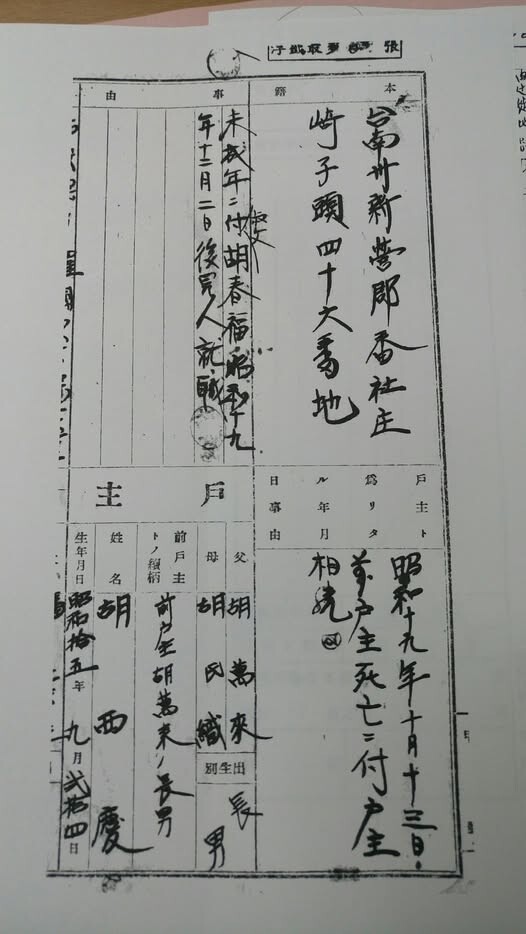 本籍
台南州新營郡番社庄
崎子頭四十六番地
事由
未成年ニ付胡春福昭和十九
年十二月二日後見人就職
戶主ト爲リタル年月日事由
昭和十九年十月十三日
前戶主死亡ニ付戶主
相続
戶主
父
胡萬來
母
胡氏
出生別
長男
前戶主トノ續柄
前戶主胡萬來ノ長男
姓名
胡西慶
生年月日
昭和拾五年九月弍拾四日